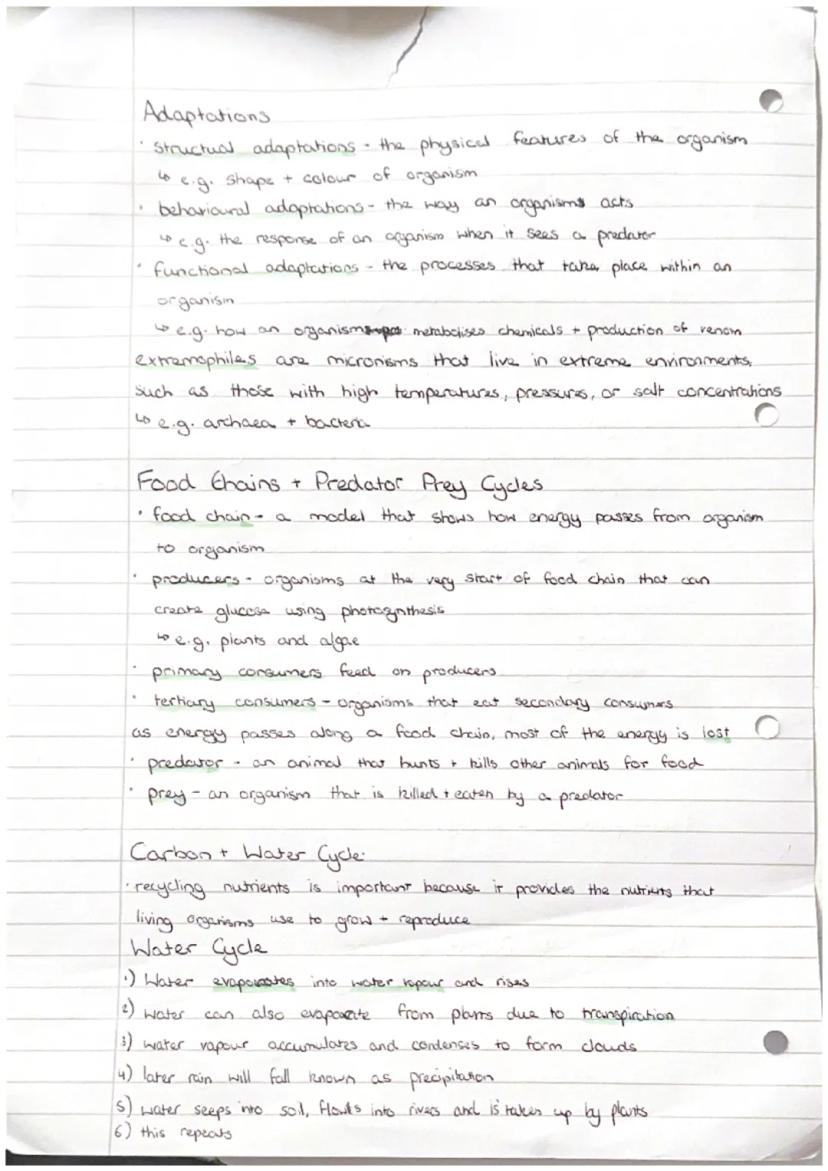 Adaptations
· structual adaptations - the physical features of the organism
↳ e.g. shape + colour of organism
· behavioural adaptations - the way an organisms acts
↳ e.g. the response of an organism when it sees a predator
· functional adaptations - the processes that take place within an
organism
↳ e.g. how an organism metabolises chemicals + production of venom
extremophiles are micronisms that live in extreme environments,
such as those with high temperatures, pressures, or salt concentrations
↳ e.g. archaea + bacteria
Food Chains + Predator Prey Cycles
· food chain - a model that shows how energy passes from organism
to organism
· producers - organisms at the very start of food chain that can
create glucose using photosynthesis
↳ e.g. plants and algae
· primary consumers feed on producers
· tertiary consumers - organisms that eat secondary consumers
as energy passes along a food chain, most of the energy is lost
· predator - an animal that hunts + kills other animals for food
· prey - an organism that is killed + eaten by a predator
Carbon + Water Cycle
· recycling nutrients is important because it provides the nutrients that
living organisms use to grow + reproduce
Water Cycle
1) Water evaporates into water vapour and rises
2) water can also evaporate from plants due to transpiration
3) water vapour accumulates and condenses to form clouds
4) later rain will fall known as precipitation
5) water seeps into soil, flows into rivers and is taken up by plants
6) this repeats